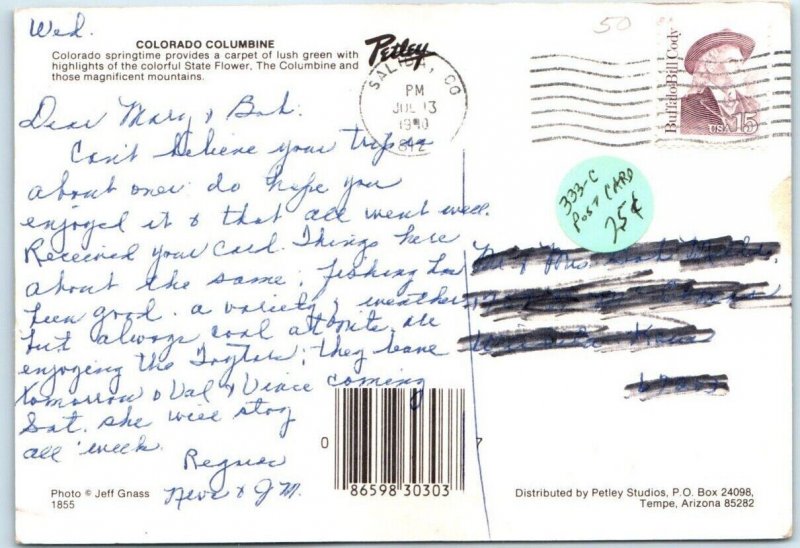 Wed.
COLORADO COLUMBINE
Colorado springtime provides a carpet of lush green with
highlights of the colorful State Flower, The Columbine and
those magnificent mountains.
Petley
SALIDA, CO
PM
JUL 13
1990
812
50
Buffalo Bill Cody
USA 15
333-C
POST CARD
25¢
Dear Mary & Bob.
Can't believe your trip is
about over do hope you
enjoyed it & that all went well.
Received your card. Things here
about the same; fishing has
been good. a variety of weather,
but always cool at nite. are
enjoying the Taylors; they leave
tomorrow & Val & Vince coming
Sat. she will stay
all week.
Regards
Neva & J M.
0
86598 30303
7
Photo © Jeff Gnass
1855
Distributed by Petley Studios, P.O. Box 24098,
Tempe, Arizona 85282